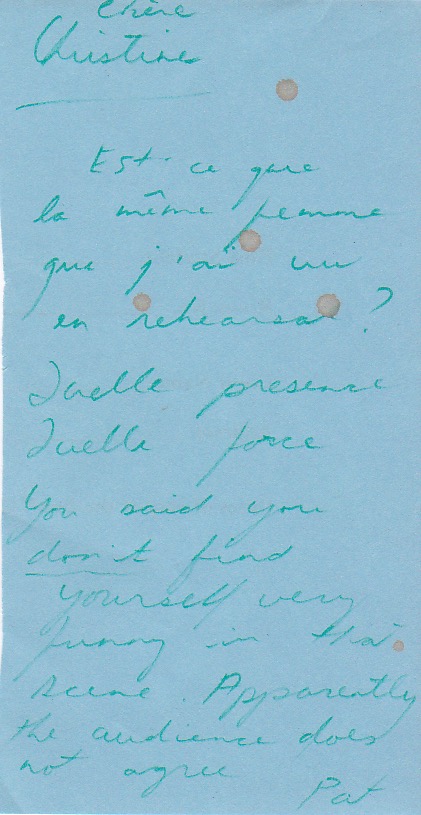 Chère
Christine
Est-ce que
la même femme
que j'ai vu
en rehearsal?
Quelle presence
Quelle force
You said you
don't find
yourself very
funny in this
scene. Apparently
the audience does
not agree
Pat